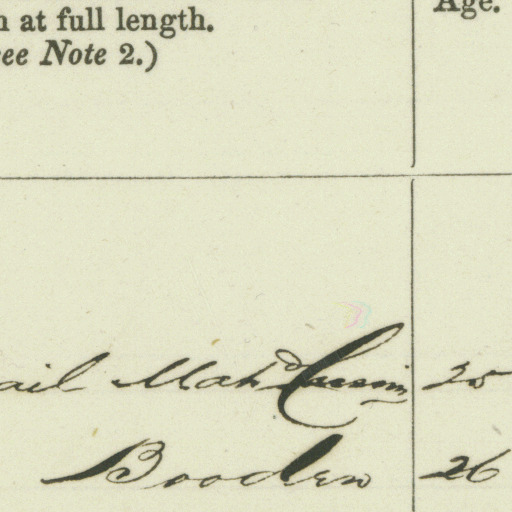 n at full length. Age.
ee Note 2.)
ail Mahd Cassim 25
Booden 26